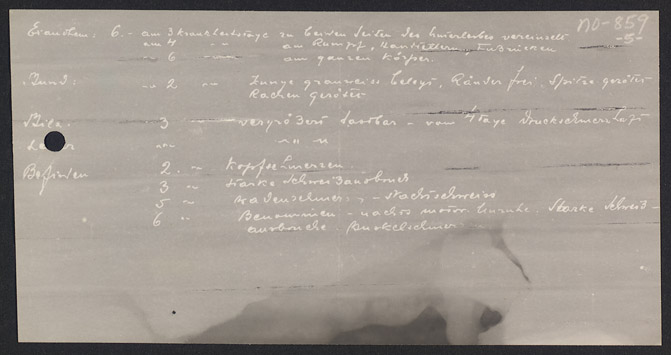 NO-859
-5-
6. - am 3 Krankheitstage zu beiden Seiten des Unterleibes vereinzelt
am 4 " " am Rumpf, Handtellern, Fußrücken
" 6 " am ganzen Körper.
" 2 " Zunge grauweiss belegt, Ränder frei, Spitze gerötet
Rachen gerötet
Milz 3 " vergrößert tastbar - vom 4 Tage druckschmerzhaft
Leber " " " " "
Befinden 2. " Kopfschmerzen
3 " starke Schweißausbruch
5 " Wadenschmerz - Nachtschweiss
6 " Benommen - nachts motor. Unruhe. Starke Schweiß-
ausbrüche. Muskelschmerz